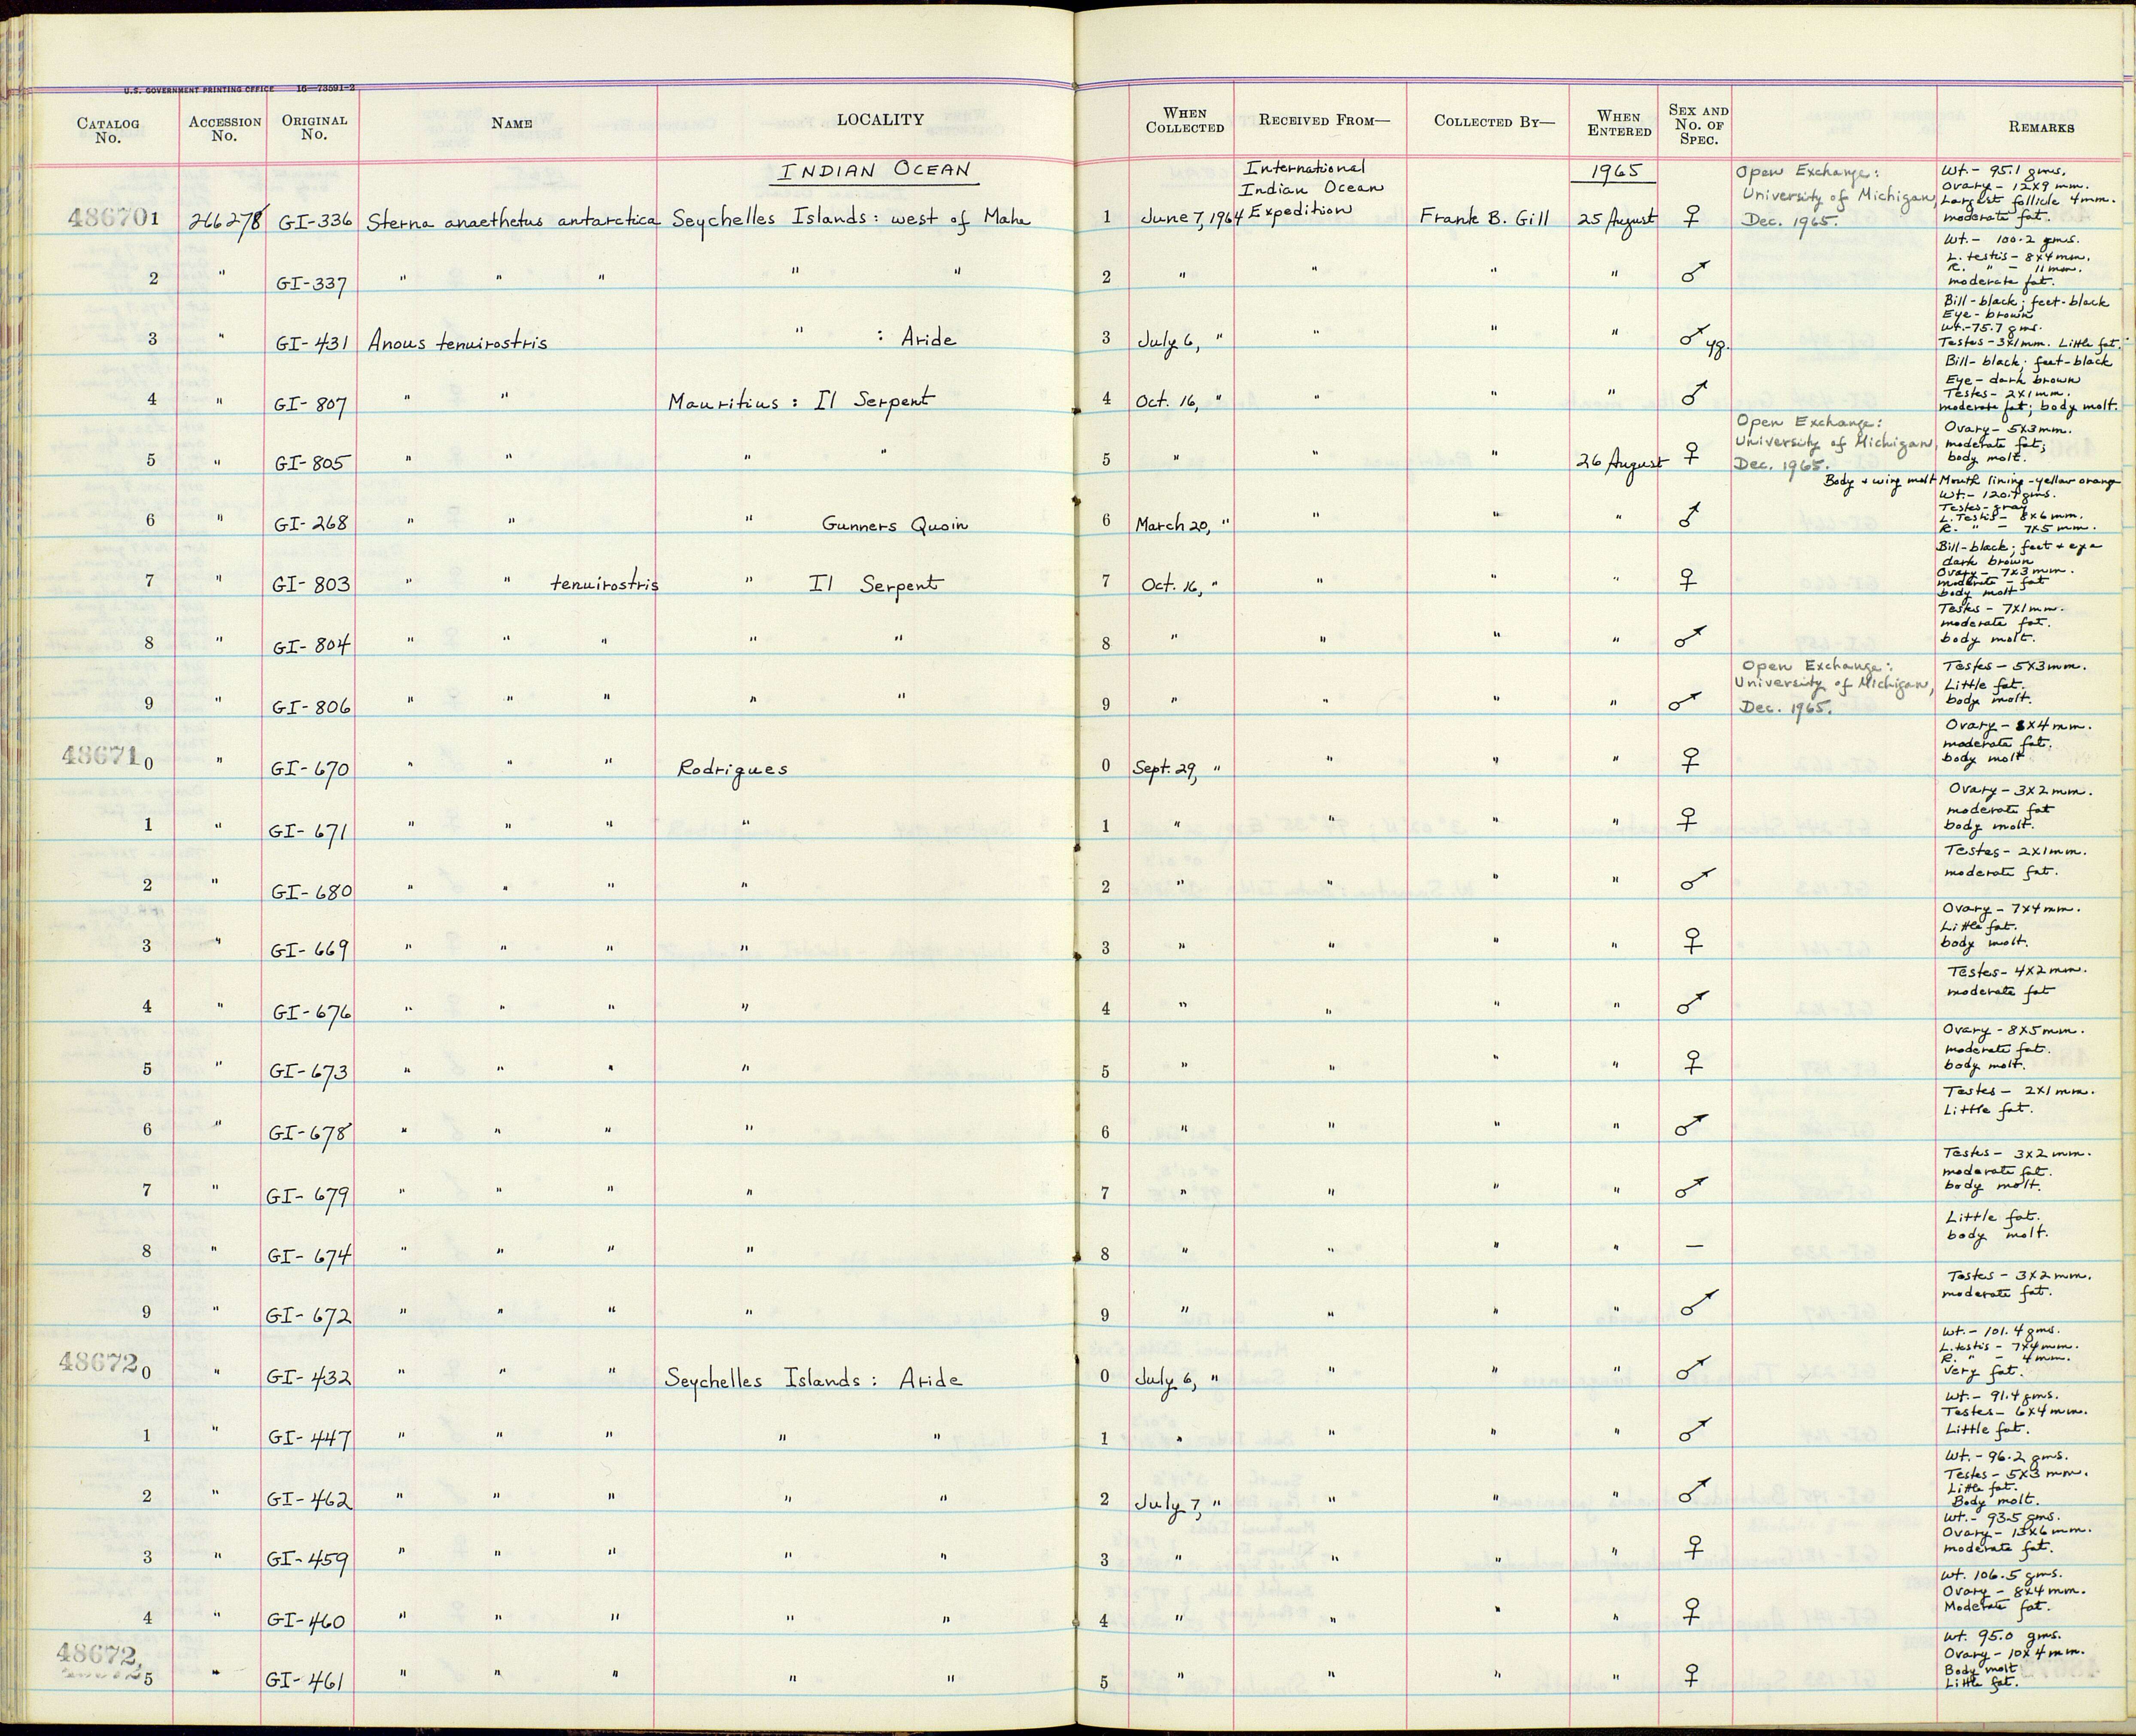 U.S. GOVERNMENT PRINTING OFFICE 16—73591-2
CATALOG No. ACCESSION No. ORIGINAL No. NAME LOCALITY WHEN COLLECTED RECEIVED FROM— COLLECTED BY— WHEN ENTERED SEX AND No. OF SPEC. REMARKS
INDIAN OCEAN International Indian Ocean 1965 Open Exchange: University of Michigan, Wt.- 95.1 gms. Ovary - 12x9 mm. Largest follicle 4mm.
486701 266278 GI-336 Sterna anaethetus antarctica Seychelles Islands: west of Mahe 1 June 7, 1964 Expedition Frank B. Gill 25 August ♀ Dec. 1965. moderate fat.
Wt.- 100.2 gms. L. testis - 8x4mm.
2 " GI-337 " " " " " 2 " " " " ♂ R. " - 11 mm. moderate fat.
Bill-black; feet-black Eye-brown
3 " GI-431 Anous tenuirostris " : Aride 3 July 6, " " " " ♂ yg. Wt.-75.7 gms. Testes-3x1mm. Little fat.
Bill-black; feet-black Eye-dark brown
4 " GI-807 " " Mauritius: Il Serpent 4 Oct. 16, " " " " ♂ Testes-2x1mm. moderate fat; body molt.
Open Exchange: University of Michigan, Ovary-5x3mm. moderate fat;
5 " GI-805 " " " " 5 " " " 26 August ♀ Dec. 1965. body molt.
Body & wing molt Mouth lining-yellow orange Wt.- 120.7 gms. Testes-gray
6 " GI-268 " " " Gunners Quoin 6 March 20, " " " " ♂ L. Testis- 8x6mm. R. " - 7x5mm.
Bill-black; feet & eye dark brown
7 " GI-803 " " tenuirostris " Il Serpent 7 Oct. 16, " " " " ♀ Ovary- 7x3mm. moderate - fat body molt
Testes - 7x1mm. moderate fat.
8 " GI-804 " " " " " 8 " " " " ♂ body molt.
Open Exchange: University of Michigan, Testes - 5x3mm. Little fat.
9 " GI-806 " " " " " 9 " " " " ♂ Dec. 1965. body molt.
Ovary - x4mm. moderate fat.
486710 " GI-670 " " " Rodrigues 0 Sept. 29, " " " " ♀ body molt
Ovary - 3x2mm. moderate fat
1 " GI-671 " " " " 1 " " " " ♀ body molt.
Testes- 2x1mm.
2 " GI-680 " " " " 2 " " " " ♂ moderate fat.
Ovary - 7x4mm. Little fat.
3 " GI-669 " " " " 3 " " " " ♀ body molt.
Testes- 4x2mm.
4 " GI-676 " " " " 4 " " " " ♂ moderate fat
Ovary - 8x5mm. moderate fat.
5 " GI-673 " " " " 5 " " " " ♀ body molt.
Testes - 2x1mm.
6 " GI-678 " " " " 6 " " " " ♂ Little fat.
Testes- 3x2mm. moderate fat.
7 " GI-679 " " " " 7 " " " " ♂ body molt.
Little fat.
8 " GI-674 " " " " 8 " " " " — body molt.
Testes - 3x2mm.
9 " GI-672 " " " " 9 " " " " ♂ moderate fat.
Wt.- 101.4 gms. L. testis - 7x4mm. R. " - 4mm.
486720 " GI-432 " " " Seychelles Islands: Aride 0 July 6, " " " " ♂ Very fat.
Wt.- 91.4 gms. Testes- 6x4mm.
1 " GI-447 " " " " " 1 " " " " ♂ Little fat.
Wt.- 96.2 gms. Testes- 5x3mm. Little fat.
2 " GI-462 " " " " " 2 July 7, " " " " ♂ Body molt.
Wt.- 93.5 gms. Ovary- 13x6mm.
3 " GI-459 " " " " " 3 " " " " ♀ moderate fat.
Wt. 106.5 gms. Ovary - 8x4mm.
4 " GI-460 " " " " " 4 " " " " ♀ Moderate fat.
Wt. 95.0 gms. Ovary-10x4mm. Body molt
486725 " GI-461 " " " " " 5 " " " " ♀ Little fat.